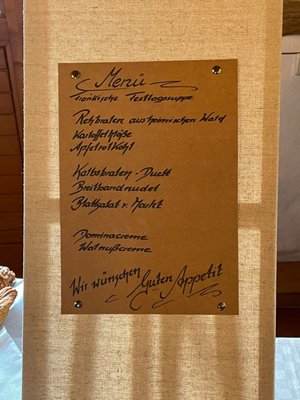 Menü
Fränkische Festtagsuppe
Rehbraten aus heimischen Wald
Kartoffelklöße
Apfelrotkohl
Kalbsbraten-Duett
Breitbandnudel
Blattsalat v. Markt
Dominocreme
Walnußcreme
Wir wünschen Guten Appetit